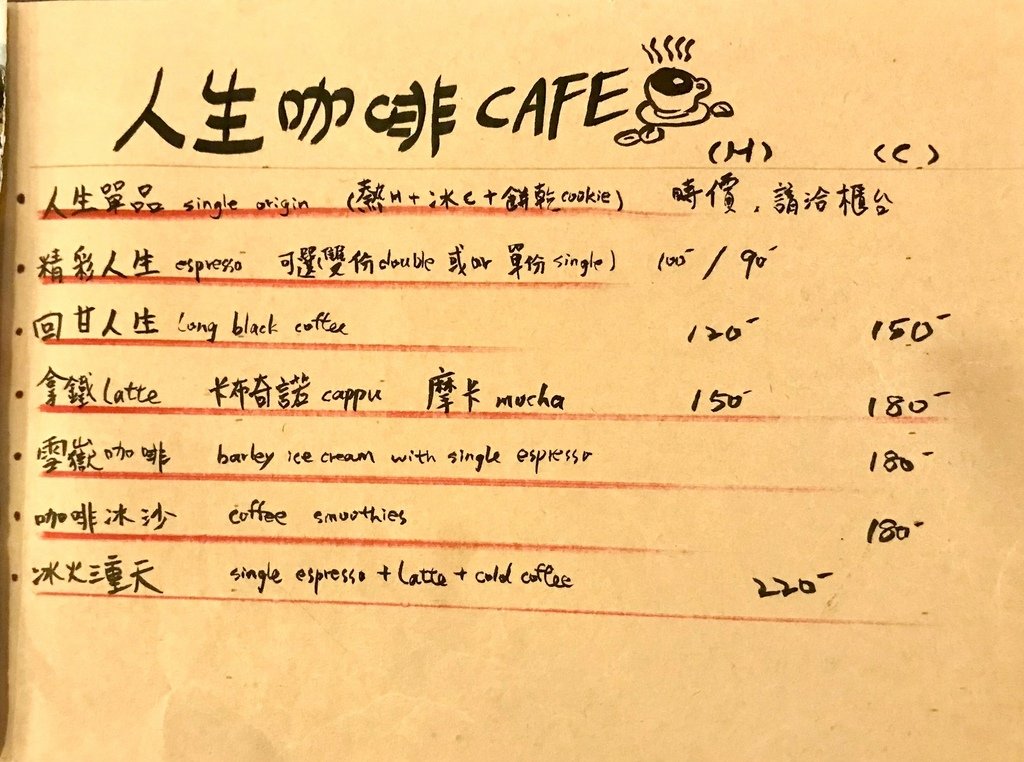 人生咖啡 CAFE
(H) (C)
人生單品 single origin (熱H+冰C+餅乾cookie) 時價，請洽櫃台
精彩人生 espresso 可選(雙份double 或or 單份single) 100- / 90-
回甘人生 Long black coffee 120- 150-
拿鐵latte 卡布奇諾 cappu 摩卡 mocha 150- 180-
雪嶽咖啡 barley ice cream with single espresso 180-
咖啡冰沙 coffee smoothies 180-
冰火三重天 single espresso + Latte + cold coffee 220-